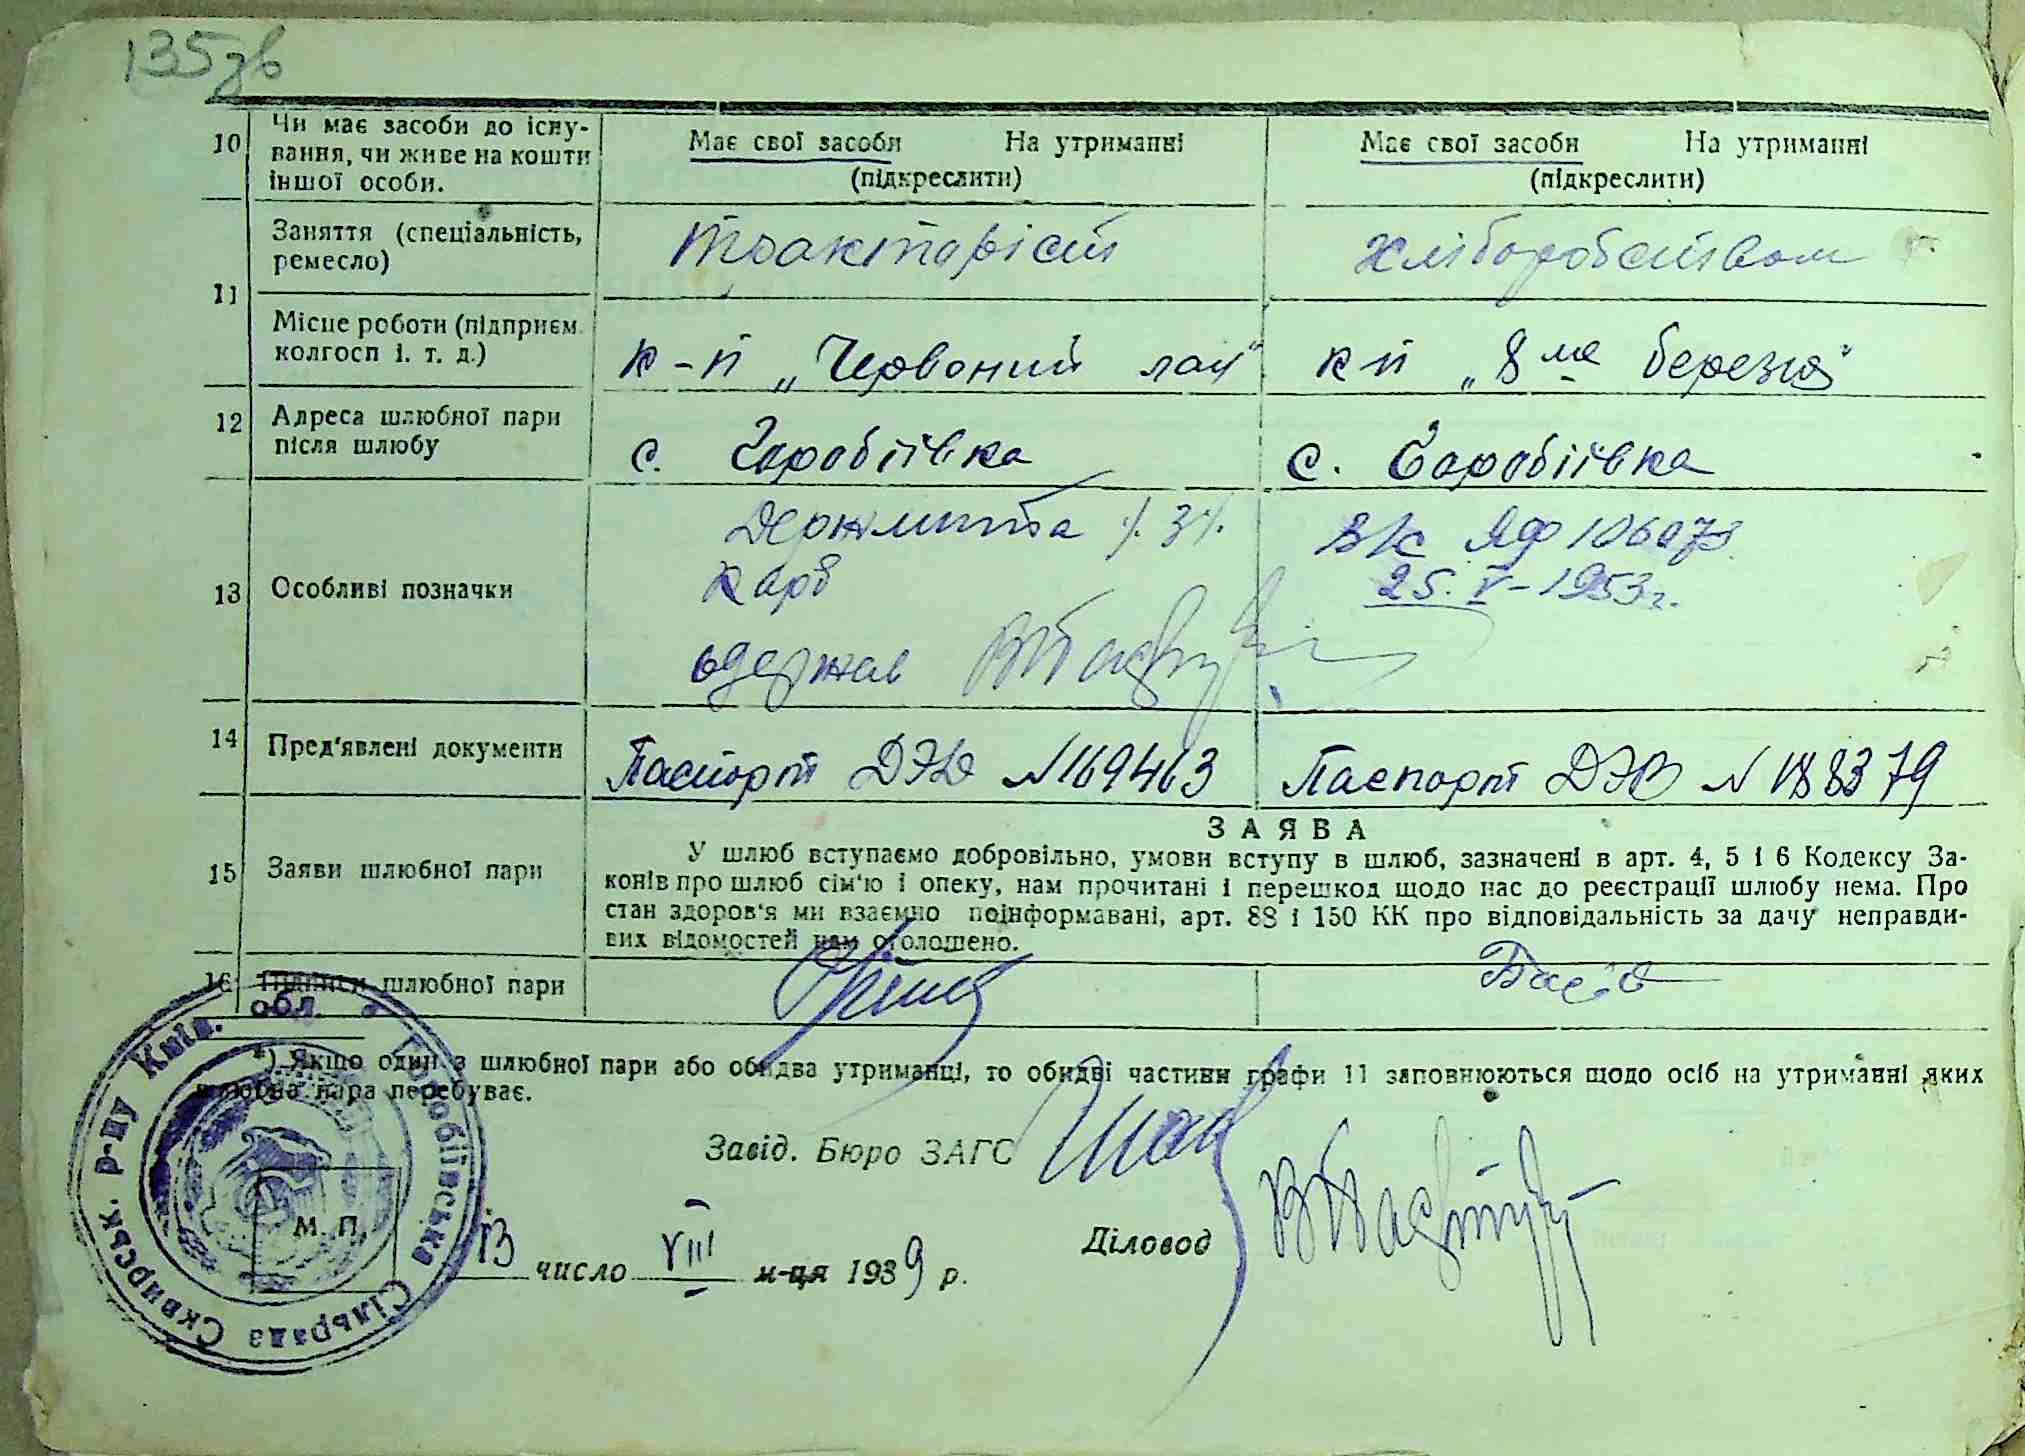 135зв
10
Чи має засоби до існу-
вання, чи живе на кошти
іншої особи.
Має свої засоби На утриманні
(підкреслити)
Має свої засоби На утриманні
(підкреслити)
11
Заняття (спеціальність,
ремесло)
Трактаріст
Хліборобством
Місце роботи (підприєм.
колгосп і. т. д.)
к-п „Червоний лан"
к п „8 ма березня"
12
Адреса шлюбної пари
після шлюбу
с. Горобіївка
с. Горобіївка
13
Особливі позначки
Держмита /. 3 /.
карб
одержав
ВК ЯФ 106073
25.V-1953г.
14
Пред'явлені документи
Паспорт № 169463
Паспорт ДЭВ № 188379
15
Заяви шлюбної пари
ЗАЯВА
У шлюб вступаємо добровільно, умови вступу в шлюб, зазначені в арт. 4, 5 і 6 Кодексу За-
конів про шлюб сім'ю і опеку, нам прочитані і перешкод щодо нас до реєстрації шлюбу нема. Про
стан здоров'я ми взаємно поінформавані, арт. 88 і 150 КК про відповідальність за дачу неправди-
вих відомостей нам оголошено.
16
Підписи шлюбної пари
*) Якщо один з шлюбної пари або обидва утриманці, то обидві частиви графи 11 заповнюються щодо осіб на утриманні яких
шлюбна пара перебуває.
Завід. Бюро ЗАГС
Діловод
13 число VIII м-ця 1939 р.
М. П.
Горобіївська Сільрада Сквирськ. р-ну Київ. обл.